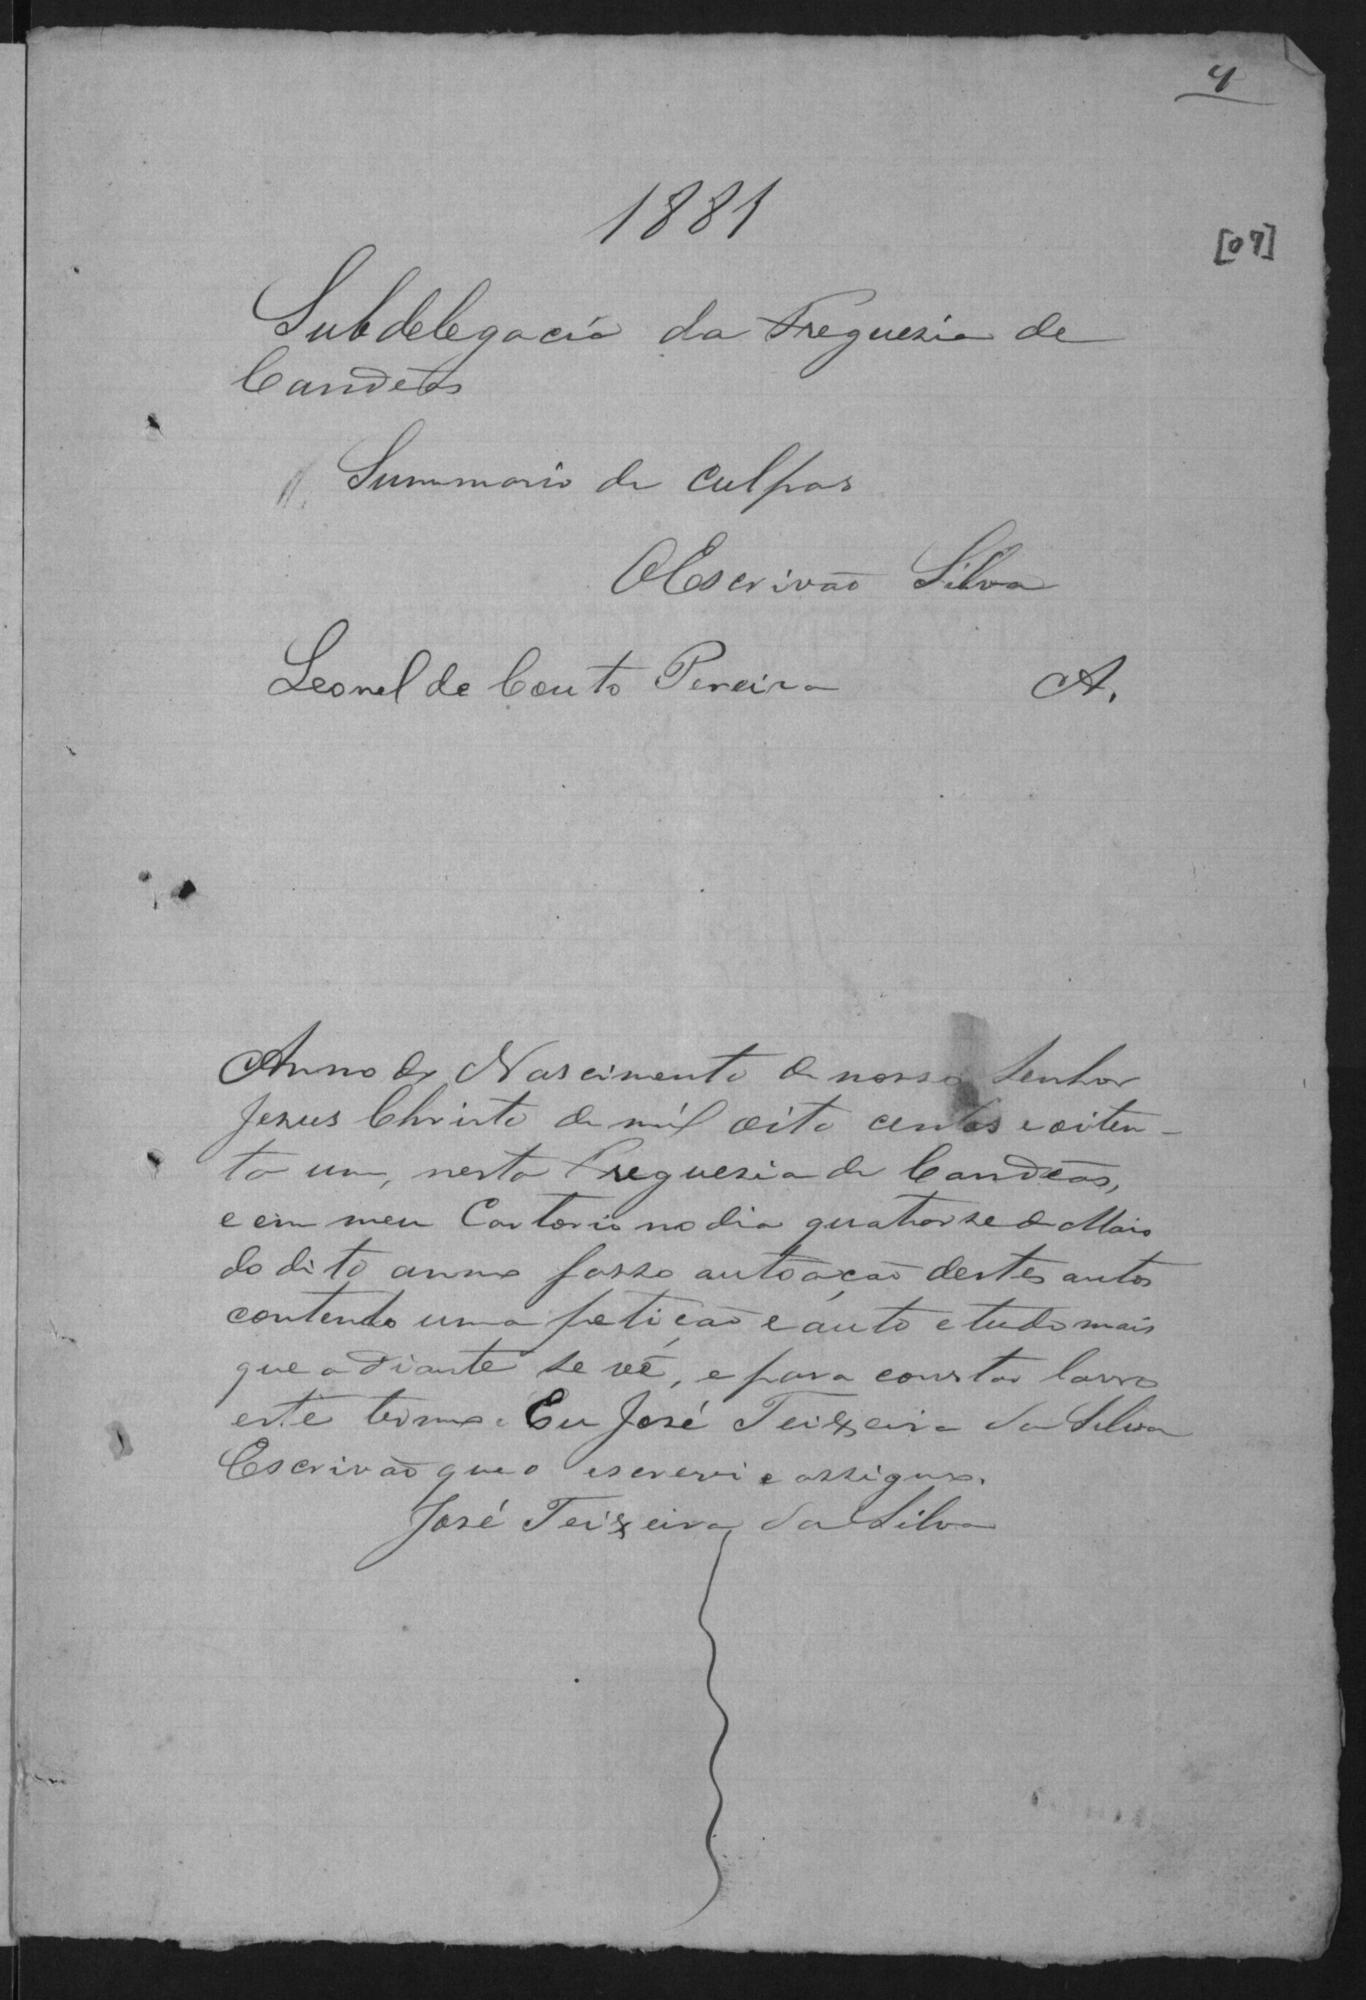 4
1881
[07]
Subdelegacia da Freguesia de
Candêas
Summario de culpas
O Escrivão Silva
Leonel de Couto Pereira A.
Anno do Nascimento de nosso Senhor
Jesus Christo de mil oito centos e oiten-
ta um, nesta Freguesia de Candêas,
e em meu Cartorio no dia quatorse de Maio
do dito anno fasso autoação destes autos
contendo uma petição e auto e tudo mais
que adiante se vê, e para constar lavro
este termo. Eu José Teixeira da Silva
Escrivão que o escrevi e assigno.
José Teixeira da Silva